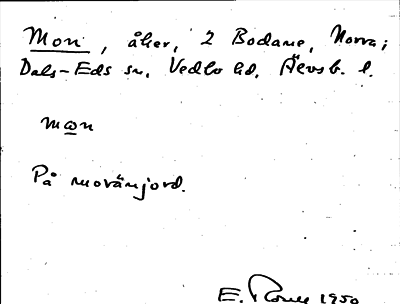 Mon, åker, 2 Bodane, Norra;
Dals-Eds sn, Vedbo hd, Älvsb. l.
mɷn
På moränjord.
E. 1950